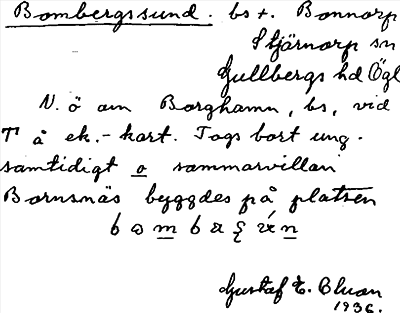 Bombergssund. bs +. Bonnorp
Stjärnorp sn
Gullbergs hd Ögl
N. ö om Borghamn, bs, vid
T å ek.-kart. Togs bort ung.
samtidigt o sommarvillan
Barnsnäs byggdes på platsen
Gustaf E.
1936.